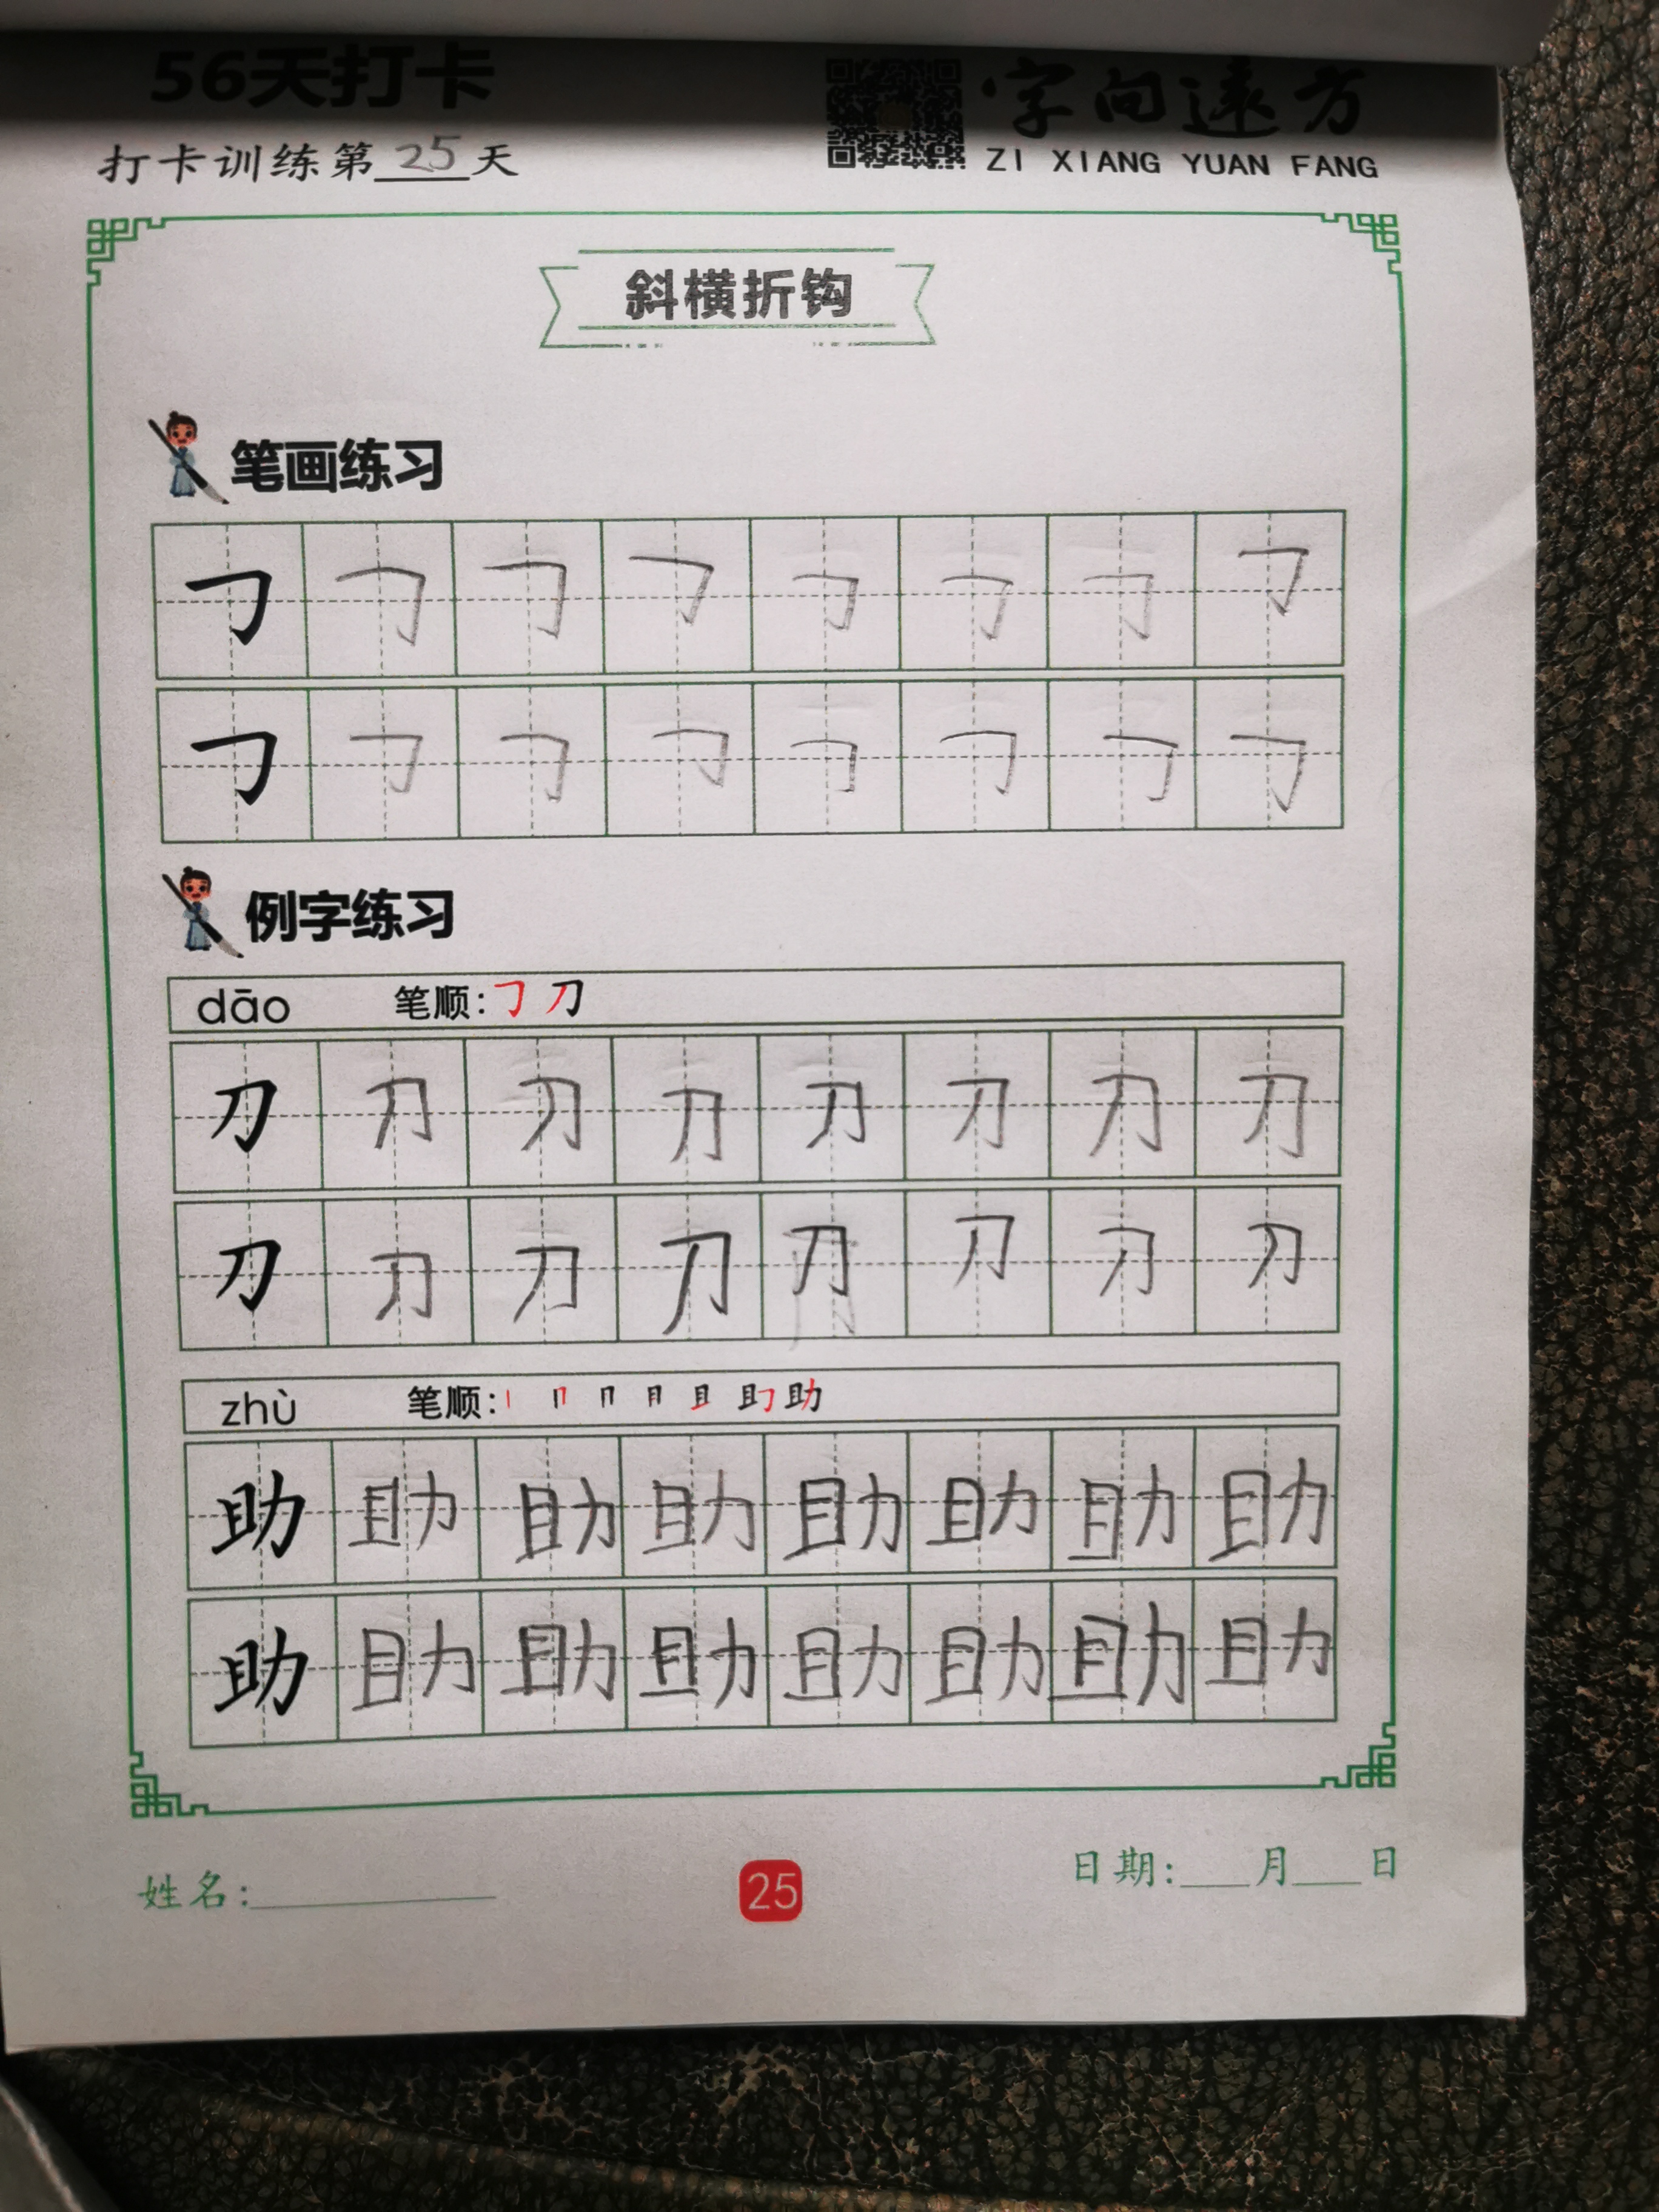 56天打卡
字向远方
打卡训练第25天
ZI XIANG YUAN FANG
斜横折钩
笔画练习
𠃌 𠃌 𠃌 𠃌 𠃌 𠃌 𠃌 𠃌
𠃌 𠃌 𠃌 𠃌 𠃌 𠃌 𠃌 𠃌
例字练习
dāo 笔顺:𠃌 刀
刀 刀 刀 刀 刀 刀 刀 刀
刀 刀 刀 刀 刀 刀 刀 刀
zhù 笔顺:丨 冂 冃 月 且 助 助
助 助 助 助 助 助 助 助
助 助 助 助 助 助 助 助
姓名:
25
日期: 月 日